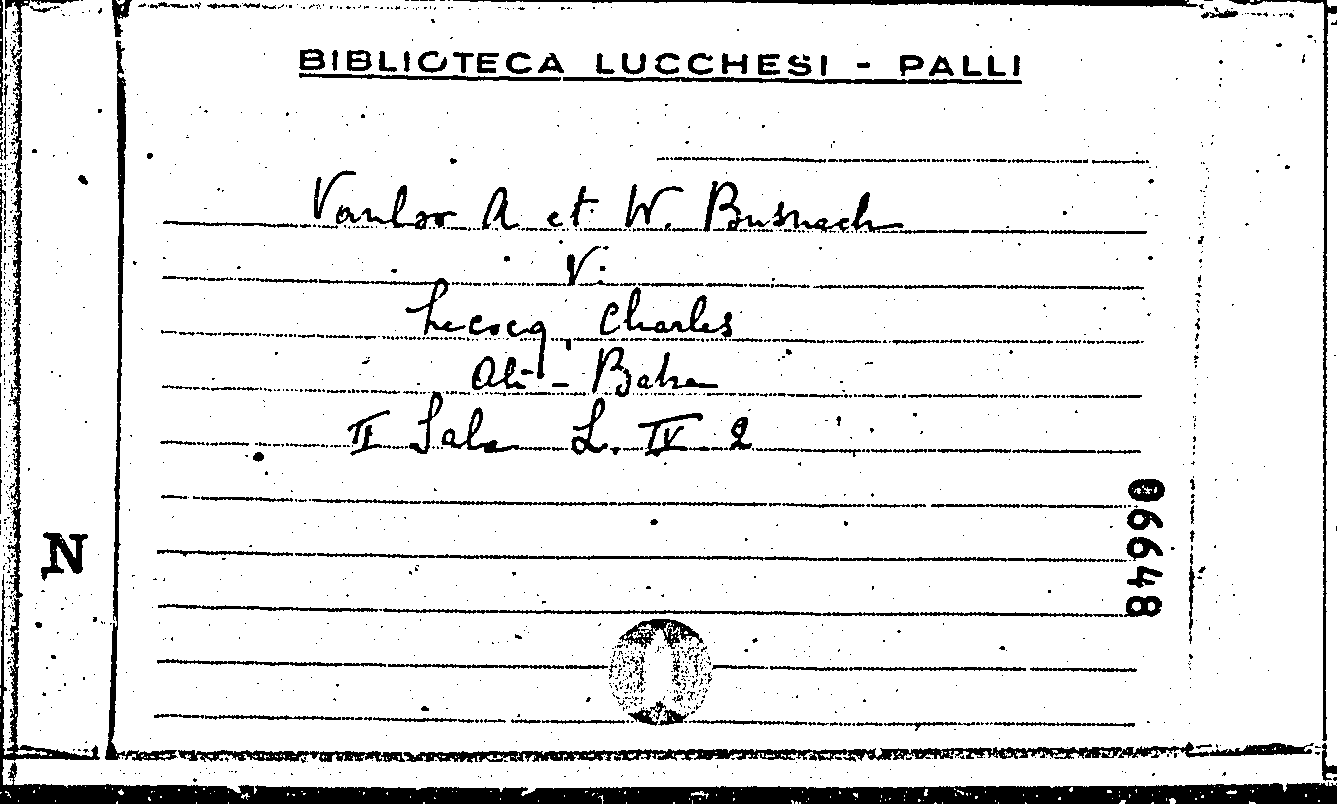 BIBLIOTECA LUCCHESI - PALLI
Vanloo A et W. Busnach
V:
Lecocq, Charles
Ali-Baba
II Sala L. IV 2
N
06648